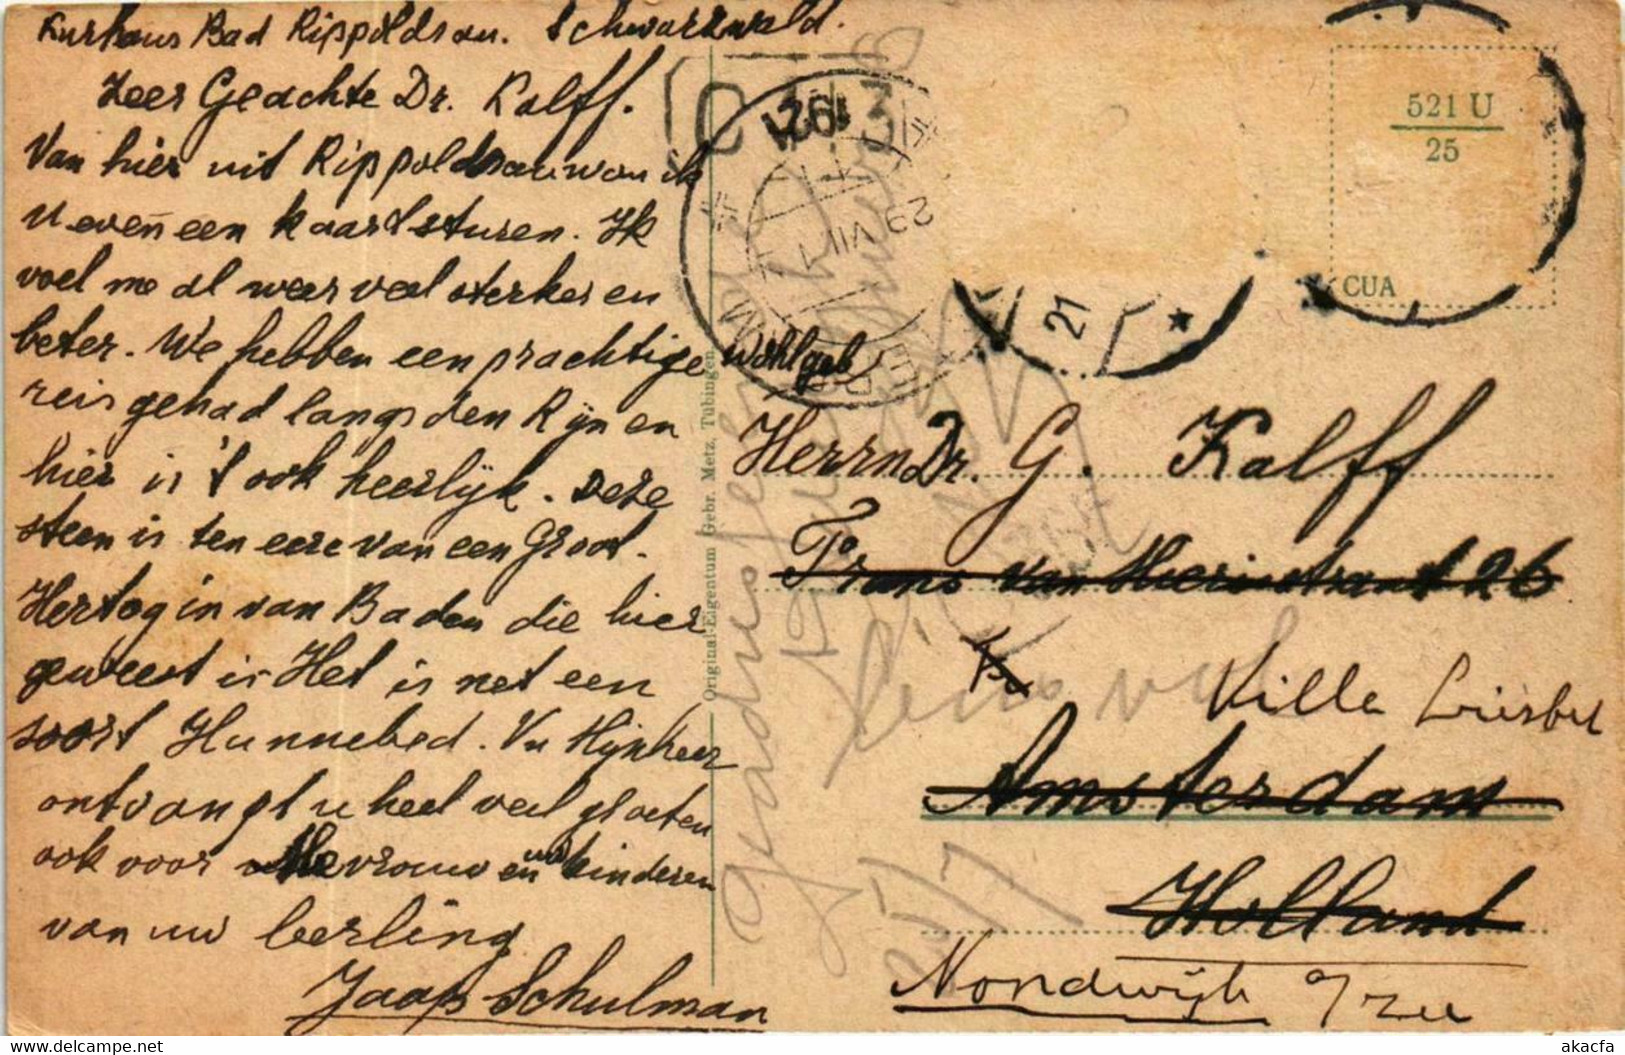 Kurhaus Bad Rippoldsau. Schwarzwald.
Zeer Geachte Dr. Kalff.
Van hier uit Rippoldsau wou ik
U even een kaart sturen. Ik
voel me al weer veel sterker en
beter. We hebben een prachtige
reis gehad langs den Rijn en
hier is 't ook heerlijk. Deze
steen is ten eere van een Groot-
Hertogin van Baden die hier
geweest is. Het is net een
soort Hunnebed. Nu Mijnheer
ontvangt u heel veel groeten
ook voor Mevrouw en kinderen
van uw leerling
Jaap Schulman
Original-Eigentum Gebr. Metz, Tübingen
1921
29 VII
21
521 U
25
CUA
Wohlgeb
Herrn Dr. G. Kalff
Frans van Mierisstraat 26
Villa
Amsterdam
Holland
Noordwijk a/Zee
25/7
akacfa